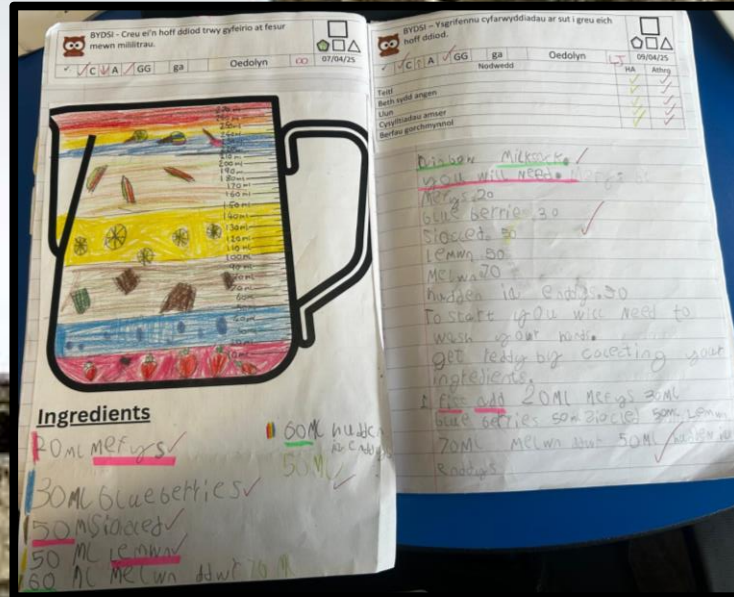 BYDSI - Creu ei'n hoff ddiod trwy gyfeirio at fesur
mewn mililitrau.
✓ C A GG ga Oedolyn 07/04/25
200 ml
190 ml
180 ml
170 ml
160 ml
150 ml
140 ml
130 ml
120 ml
110 ml
100 ml
90 ml
Ingredients
20 ML mefys ✓
30 ML blueberries ✓
50 m Siocled ✓
50 ML Lemwn ✓
60 ML melwn ddwr
60 ML hudden
50 ML
BYDSI – Ysgrifennu cyfarwyddiadau ar sut i greu eich
hoff ddiod.
✓ C A GG ga Oedolyn LJ 09/04/25
Nodwedd HA Athro
Teitl
Beth sydd angen
Llun
Cysylltiadau amser
Berfau gorchmynnol
Milksack. ✓
you will need.
Mefys 20
blue berries 30
Siocled. 50
Lemwn 50
Melwn 70
hudden in enddys. 50
To start you will need to
wash your hands.
get leddy by colecting your
ingredients.
fist add 20ML Mefys 30ML
blue berries 50m Siocled 50ML Lemwn
70ML Melwn ddwr 50ML hudden in
Enddys